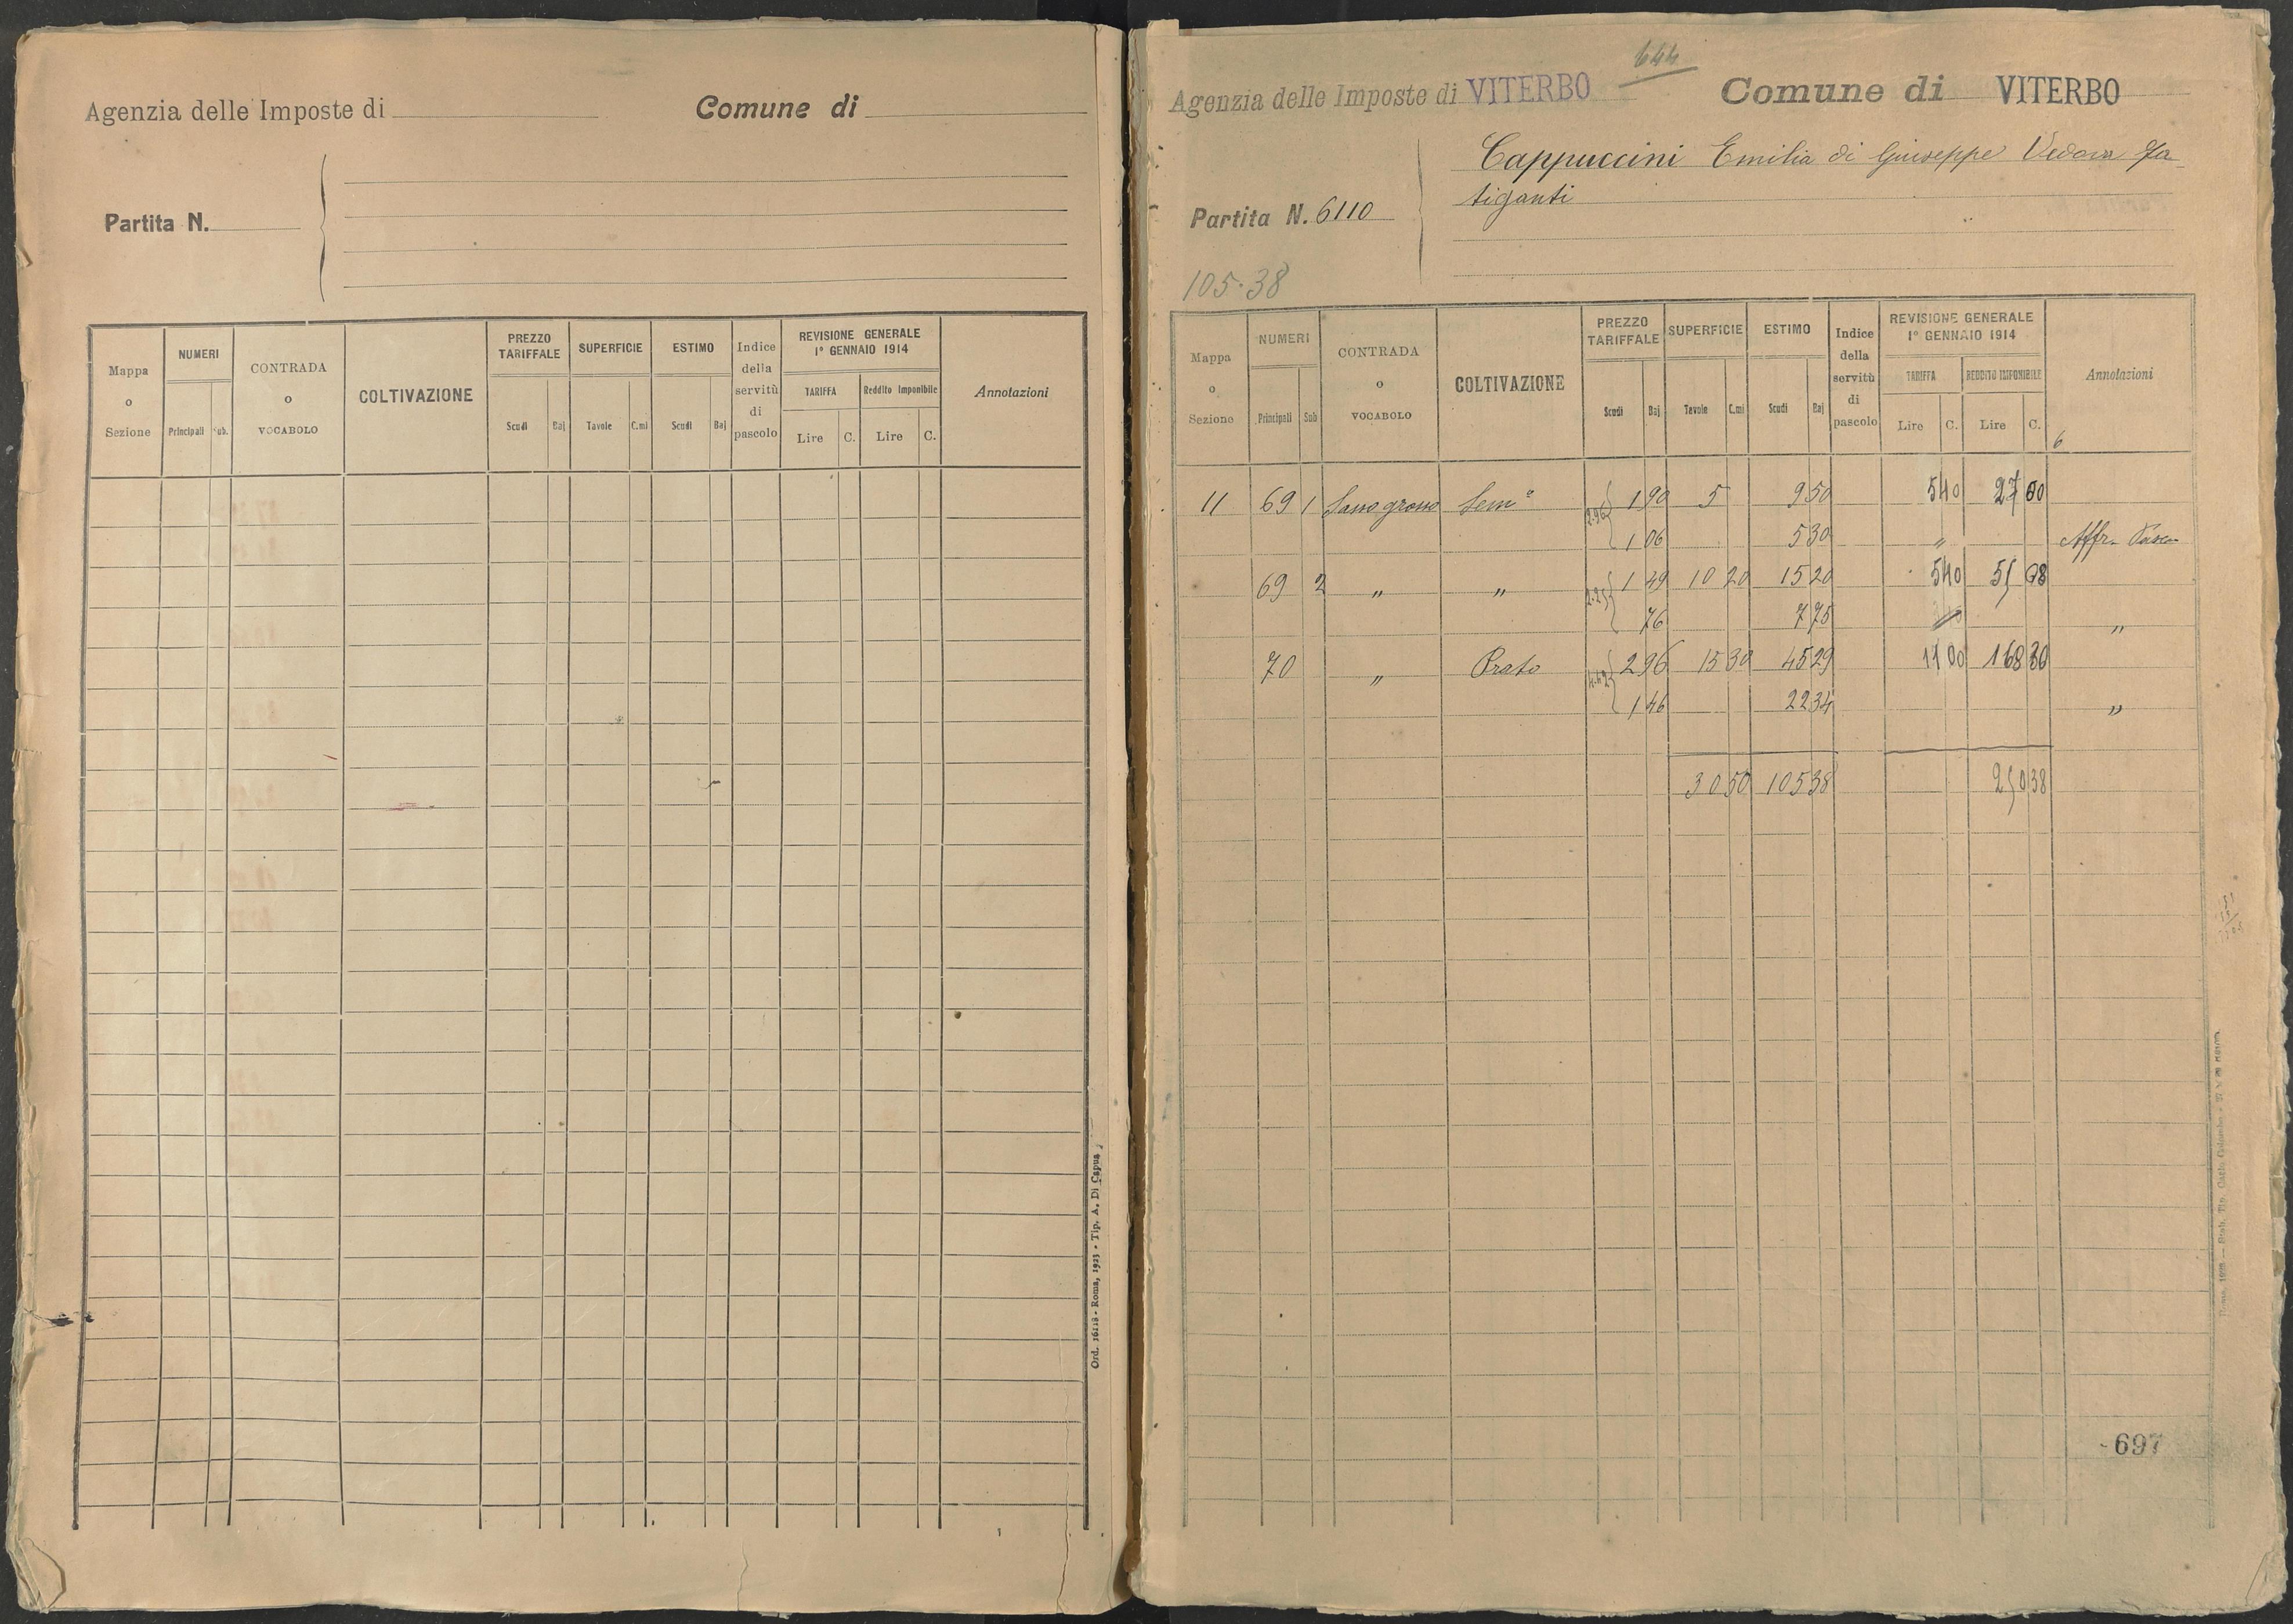 Agenzia delle Imposte di Comune di
Partita N.
Mappa o Sezione NUMERI Principali Sub. CONTRADA o VOCABOLO COLTIVAZIONE PREZZO TARIFFALE Scudi Baj SUPERFICIE Tavole C.mi ESTIMO Scudi Baj Indice della servitù di pascolo REVISIONE GENERALE 1° GENNAIO 1914 TARIFFA Lire C. Reddito Imponibile Lire C. Annotazioni
Ord. 16118 - Roma, 1923 - Tip. A. Di Capua
644
Agenzia delle Imposte di VITERBO Comune di VITERBO
Cappuccini Emilia di Giuseppe Vedova Fa
tiganti
Partita N. 6110
105.38
Mappa o Sezione NUMERI Principali Sub CONTRADA o VOCABOLO COLTIVAZIONE PREZZO TARIFFALE Scudi Baj SUPERFICIE Tavole C.mi ESTIMO Scudi Baj Indice della servitù di pascolo REVISIONE GENERALE 1° GENNAIO 1914 TARIFFA Lire C. REDDITO IMPONIBILE Lire C. Annotazioni
6
11 69 1 Sasso grosso Sem° 2.96 1 90 5 9 50 5 40 27 00
1 06 5 30 " Affr. Pasc.
69 2 " " 2.25 1 49 10 20 15 20 5 40 55 08
76 7 75 "
70 " Prato 4.42 2 96 15 30 45 29 11 00 168 30
1 46 22 34 "
30 50 105 38 250 38
697